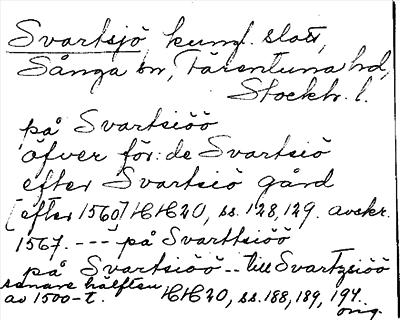 Svartsjö, kungl. slott,
Sånga sn, Färentuna hd,
Stockh. l.
på Svartsiöö
öfver för: de Svartsiö
efter Svartsiö gård
[efter 1560] HH20, ss. 128, 129. avskr.
1567. --- på Svarttsiöö
på Svartsiöö -- till Svartzsiöö
senare hälften
av 1500-t. HH20, ss. 188, 189, 194.
orig.